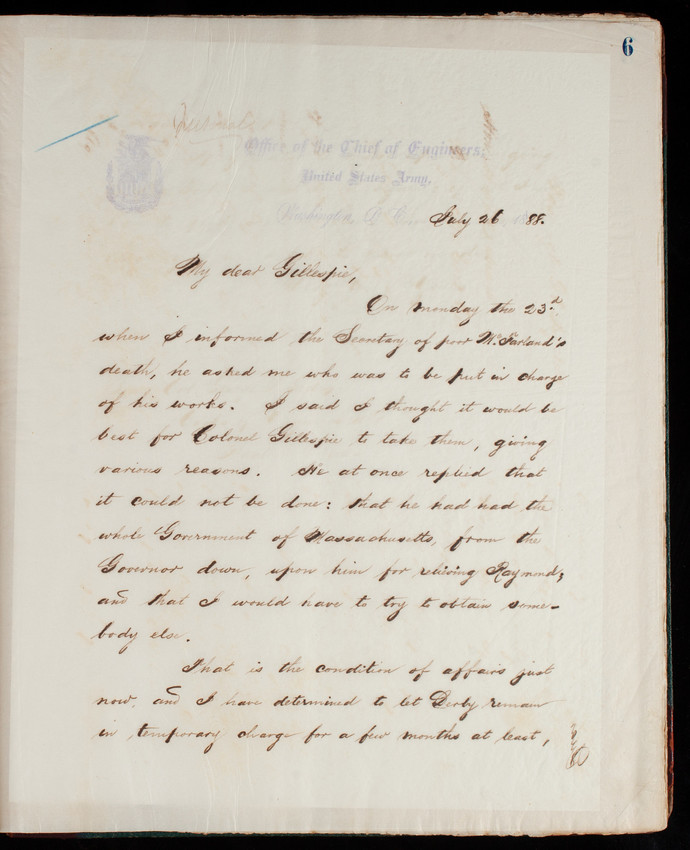 6
Personal
Office of the Chief of Engineers,
United States Army,
Washington, D. C., July 26 1888.
My dear Gillespie,
On monday the 23d
when I informed the Secretary of poor McFarland's
death, he asked me who was to be put in charge
of his works. I said I thought it would be
best for Colonel Gillespie to take them, giving
various reasons. He at once replied that
it could not be done: that he had had the
whole Government of Massachusetts, from the
Governor down, upon him for relieving Raymond;
and that I would have to try to obtain some-
body else.
That is the condition of affairs just
now, and I have determined to let Derby remain
in temporary charge for a few months at least,